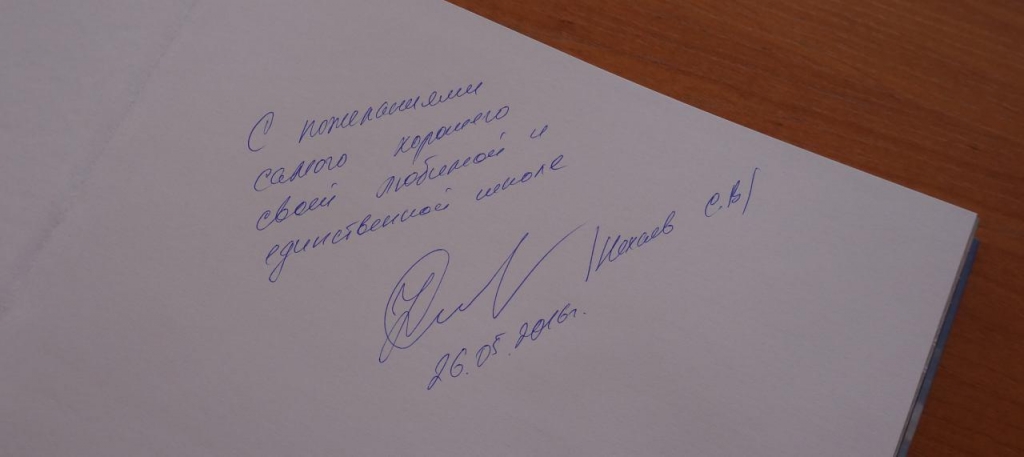 С пожеланиями
самого хорошего
своей любимой и
единственной школе
/Нехаев С.В/
26.05.2016г.